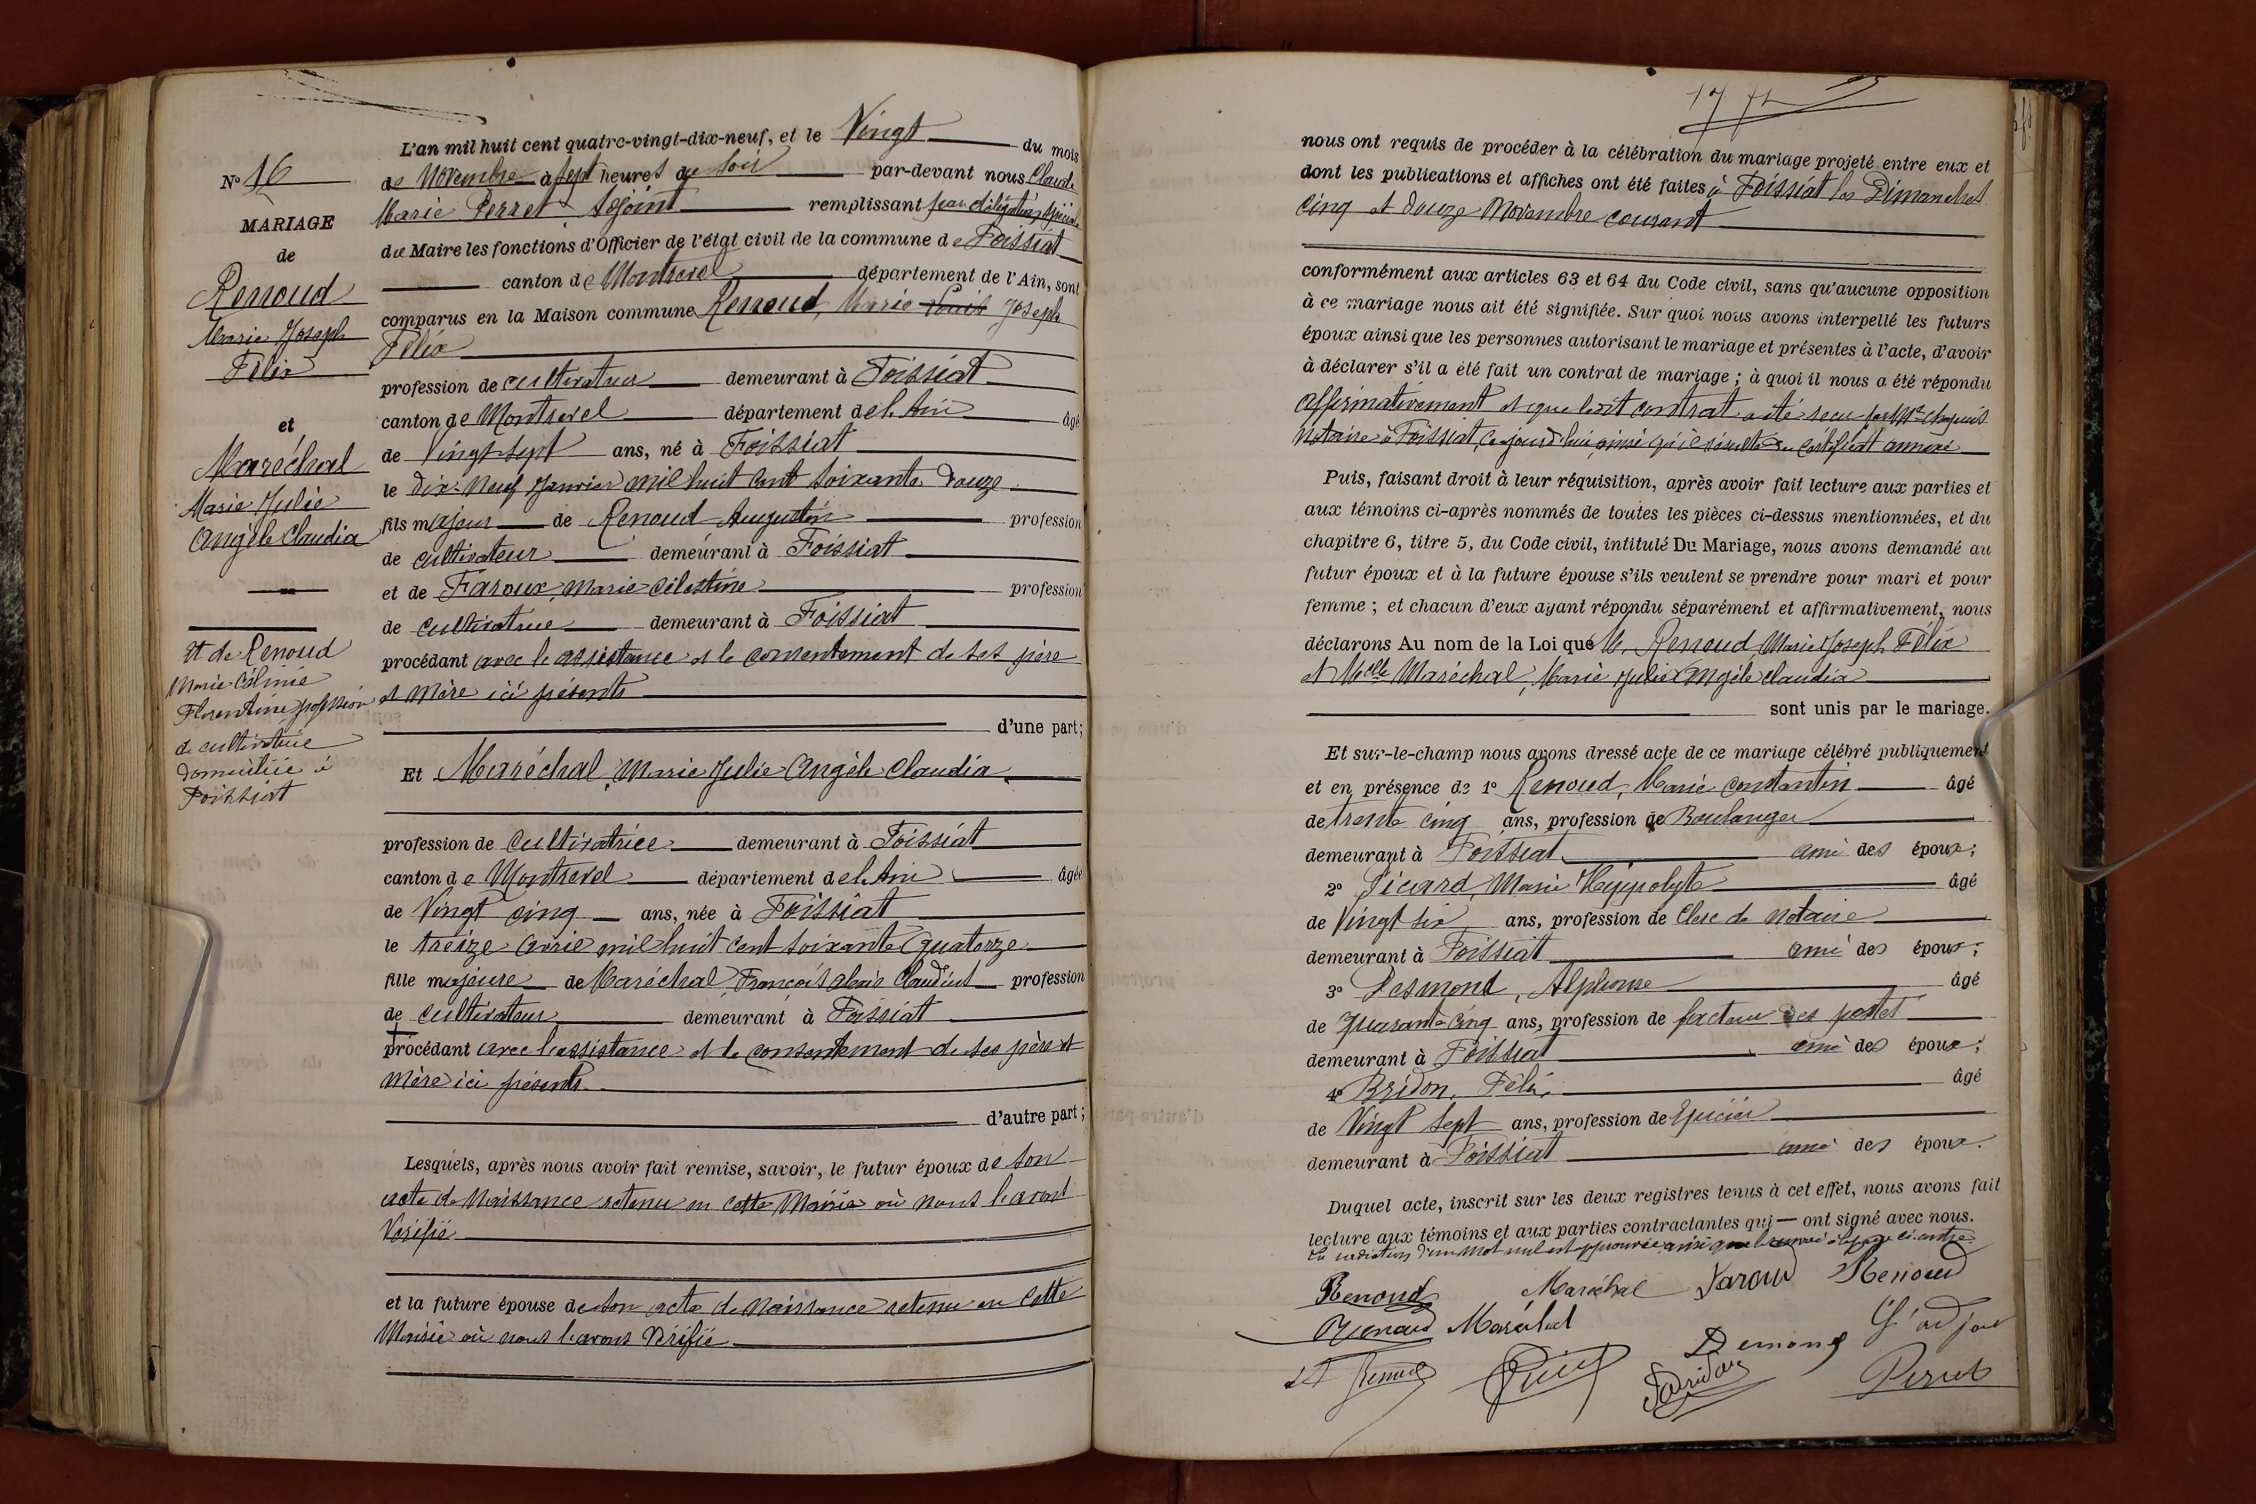 N° 16
MARIAGE
de
Renoud
Marie Joseph
Félix
et
Maréchal
Marie Julie
Angèle Claudia
et de Renoud
Marie Céline
Florentine profession
de cultivatrice
domiciliée à
Foissiat
L'an mil huit cent quatre-vingt-dix-neuf, et le Vingt du mois
de Novembre à sept heures du soir par-devant nous Claude
Marie Perret Adjoint remplissant par délégation spéciale
du Maire les fonctions d'Officier de l'état civil de la commune de Foissiat
canton de Montrevel département de l'Ain, sont
comparus en la Maison commune Renoud, Marie Joseph
Félix
profession de cultivateur demeurant à Foissiat
canton de Montrevel département de l'Ain âgé
de Vingt sept ans, né à Foissiat
le dix-neuf Janvier mil huit cent soixante douze
fils majeur de Renoud Augustin profession
de cultivateur demeurant à Foissiat
et de Faroux, Marie Célestine profession
de cultivatrice demeurant à Foissiat
procédant avec l'assistance et le consentement de ses père
et mère ici présents
d'une part;
Et Maréchal, Marie Julie Angèle Claudia
profession de Cultivatrice demeurant à Foissiat
canton de Montrevel département de l'Ain âgée
de Vingt cinq ans, née à Foissiat
le treize avril mil huit cent soixante quatorze
fille majeure de Maréchal, François Claudius profession
de cultivateur demeurant à Foissiat
procédant avec l'assistance et le consentement de ses père et
mère ici présents
d'autre part;
Lesquels, après nous avoir fait remise, savoir, le futur époux de son
acte de Naissance retenu en cette Mairie où nous l'avons
Vérifié
et la future épouse de son acte de Naissance retenu en cette
Mairie où nous l'avons Vérifié
17
nous ont requis de procéder à la célébration du mariage projeté entre eux et
dont les publications et affiches ont été faites à Foissiat les Dimanches
cinq et douze Novembre courant
conformément aux articles 63 et 64 du Code civil, sans qu'aucune opposition
à ce mariage nous ait été signifiée. Sur quoi nous avons interpellé les futurs
époux ainsi que les personnes autorisant le mariage et présentes à l'acte, d'avoir
à déclarer s'il a été fait un contrat de mariage; à quoi il nous a été répondu
affirmativement et que ledit contrat a été reçu par Me Chapuis
Notaire à Foissiat, ce jourd'hui, ainsi qu'il résulte du certificat annexé
Puis, faisant droit à leur réquisition, après avoir fait lecture aux parties et
aux témoins ci-après nommés de toutes les pièces ci-dessus mentionnées, et du
chapitre 6, titre 5, du Code civil, intitulé Du Mariage, nous avons demandé au
futur époux et à la future épouse s'ils veulent se prendre pour mari et pour
femme; et chacun d'eux ayant répondu séparément et affirmativement, nous
déclarons Au nom de la Loi que M. Renoud, Marie Joseph Félix
et Melle Maréchal, Marie Julie Angèle Claudia
sont unis par le mariage.
Et sur-le-champ nous avons dressé acte de ce mariage célébré publiquement
et en présence de 1° Renoud, Marie Constantin âgé
de trente cinq ans, profession de Boulanger
demeurant à Foissiat ami des époux;
2° Picard, Marie Hippolyte âgé
de Vingt six ans, profession de Clerc de notaire
demeurant à Foissiat ami des époux;
3° Desmond, Alphonse âgé
de quarante cinq ans, profession de facteur des postes
demeurant à Foissiat ami des époux;
4° Bridon, Félix âgé
de Vingt sept ans, profession de Epicier
demeurant à Foissiat ami des époux.
Duquel acte, inscrit sur les deux registres tenus à cet effet, nous avons fait
lecture aux témoins et aux parties contractantes qui ont signé avec nous.
La radiation d'un mot nul est approuvée ainsi que le renvoi à la page ci-contre
Renoud Maréchal Faroux Renoud
Renoud Maréchal
L'adjoint
Perret